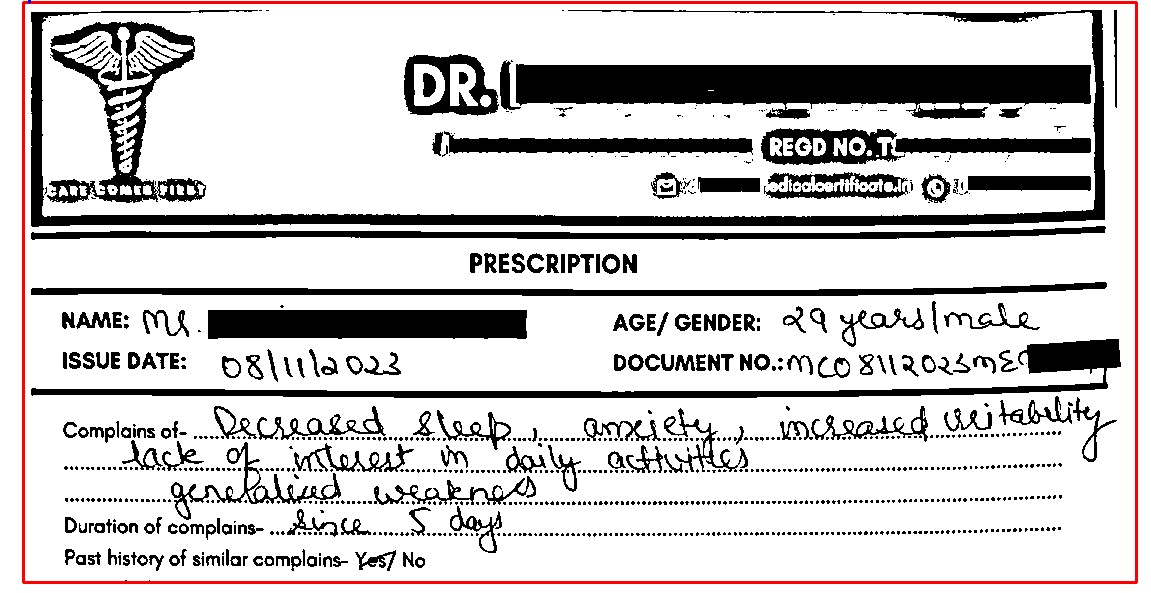 CARE COMES FIRST
DR.
REGD NO. TS
edicalcertificate.in
PRESCRIPTION
NAME: Mr. AGE/ GENDER: 29 years/male
ISSUE DATE: 08/11/2023 DOCUMENT NO.: MC08112023ME
Complains of- Decreased sleep, anxiety, increased irritability
lack of interest in daily activities
generalised weakness
Duration of complains- since 5 days
Past history of similar complains- Yes/ No